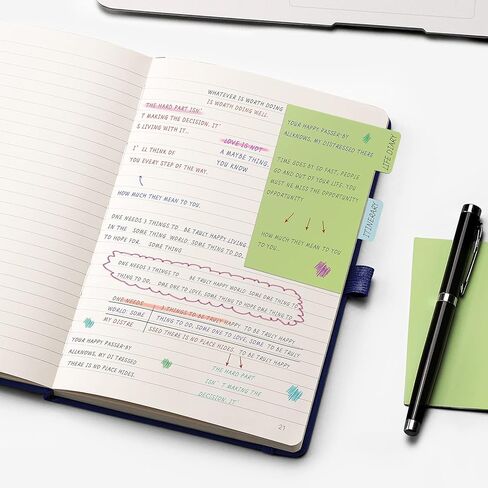 WHATEVER IS WORTH DOING
IS WORTH DOING WELL.
THE HARD PART ISN'
T MAKING THE DECISION. IT'
S LIVING WITH IT..
LOVE IS NOT
A MAYBE THING,
YOU KNOW
I' LL THINK OF
YOU EVERY STEP OF THE WAY.
HOW MUCH THEY MEAN TO YOU.
ONE NEEDS 3 THINGS TO BE TRULY HAPPY LIVING
IN THE SOME THING WORLD SOME THING TO DO.
TO HOPE FOR. SOME THING
ONE NEEDS 3 THINGS TO BE TRULY HAPPY WORLD SOME ONE THING TO
THING TO DO, OME ONE TO LOVE, SOME THING TO HOPE OME THING TO
ONE NEEDS 3 THINGS TO BE TRULY HAPPY TO BE TRULY HAPPY
WORLD SOME THING TO DO, SOME ONE TO LOVE, SOME TO BE TRULY
MY DISTRE SSED THERE IS NO PLACE HIDES. TO BE TRULY HAPPY
YOUR HAPPY PASSER-BY
ALLKNOWS, MY DI TRESSED
THERE IS NO PLACE HIDES.
THE HARD PART
ISN' T MAKING THE
DECISION. IT'
21
YOUR HAPPY PASSER-BY
ALLKNOWS, MY DISTRESSED THERE
TIME GOES BY SO FAST, PEOPLE
GO AND OUT OF YOUR LIFE. YOU
MUST NE MISS THE OPPORTUNITY
OPPORTUNITY
HOW MUCH THEY MEAN TO YOU
TO YOU..
LIFE DIARY
ITINERARY